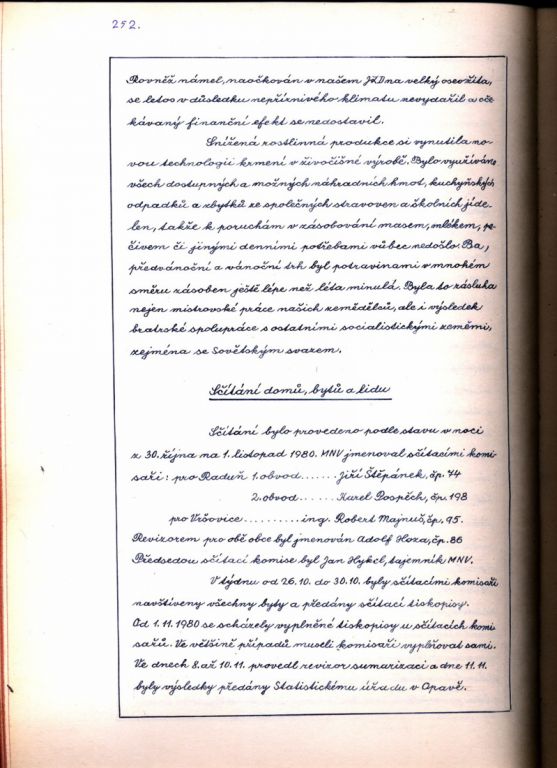 252.
Rovněž námel, naočkován v našem JZD na velký osev žita,
se letos v důsledku nepříznivého klimatu nevydařil a oče
kávaný finanční efekt se nedostavil.
Snížená rostlinná produkce si vynutila no-
vou technologii krmení v živočišné výrobě. Bylo využíváno
všech dostupných a možných náhradních hmot, kuchyňských
odpadků a zbytků ze společných stravoven a školních jíde-
len, takže k poruchám v zásobování masem, mlékem, pe-
čivem či jinými denními potřebami vůbec nedošlo. Ba,
předvánoční a vánoční trh byl potravinami v mnohém
směru zásoben ještě lépe než léta minulá. Byla to zásluha
nejen mistrovské práce našich zemědělců, ale i výsledek
bratrské spolupráce s ostatními socialistickými zeměmi,
zejména se Sovětským svazem.
Sčítání domů, bytů a lidu
Sčítání bylo provedeno podle stavu v noci
z 30. října na 1. listopad 1980. MNV jmenoval sčítacími komi
saři: pro Raduň 1. obvod ...... Jiří Štěpánek, čp. 74
2. obvod ...... Karel Pospěch, čp. 198
pro Vršovice .......... ing. Robert Majnuš, čp. 95.
Revizorem pro obě obce byl jmenován Adolf Hoza, čp. 86
Předsedou sčítací komise byl Jan Hykel, tajemník MNV.
V týdnu od 26. 10. do 30. 10. byly sčítacími komisaři
navštíveny všechny byty a předány sčítací tiskopisy.
Od 1. 11. 1980 se scházely vyplněné tiskopisy u sčítacích komi
sařů. Ve většině případů museli komisaři vyplňovat sami.
Ve dnech 8. až 10. 11. provedl revizor sumarizaci a dne 11. 11.
byly výsledky předány Statistickému úřadu v Opavě.